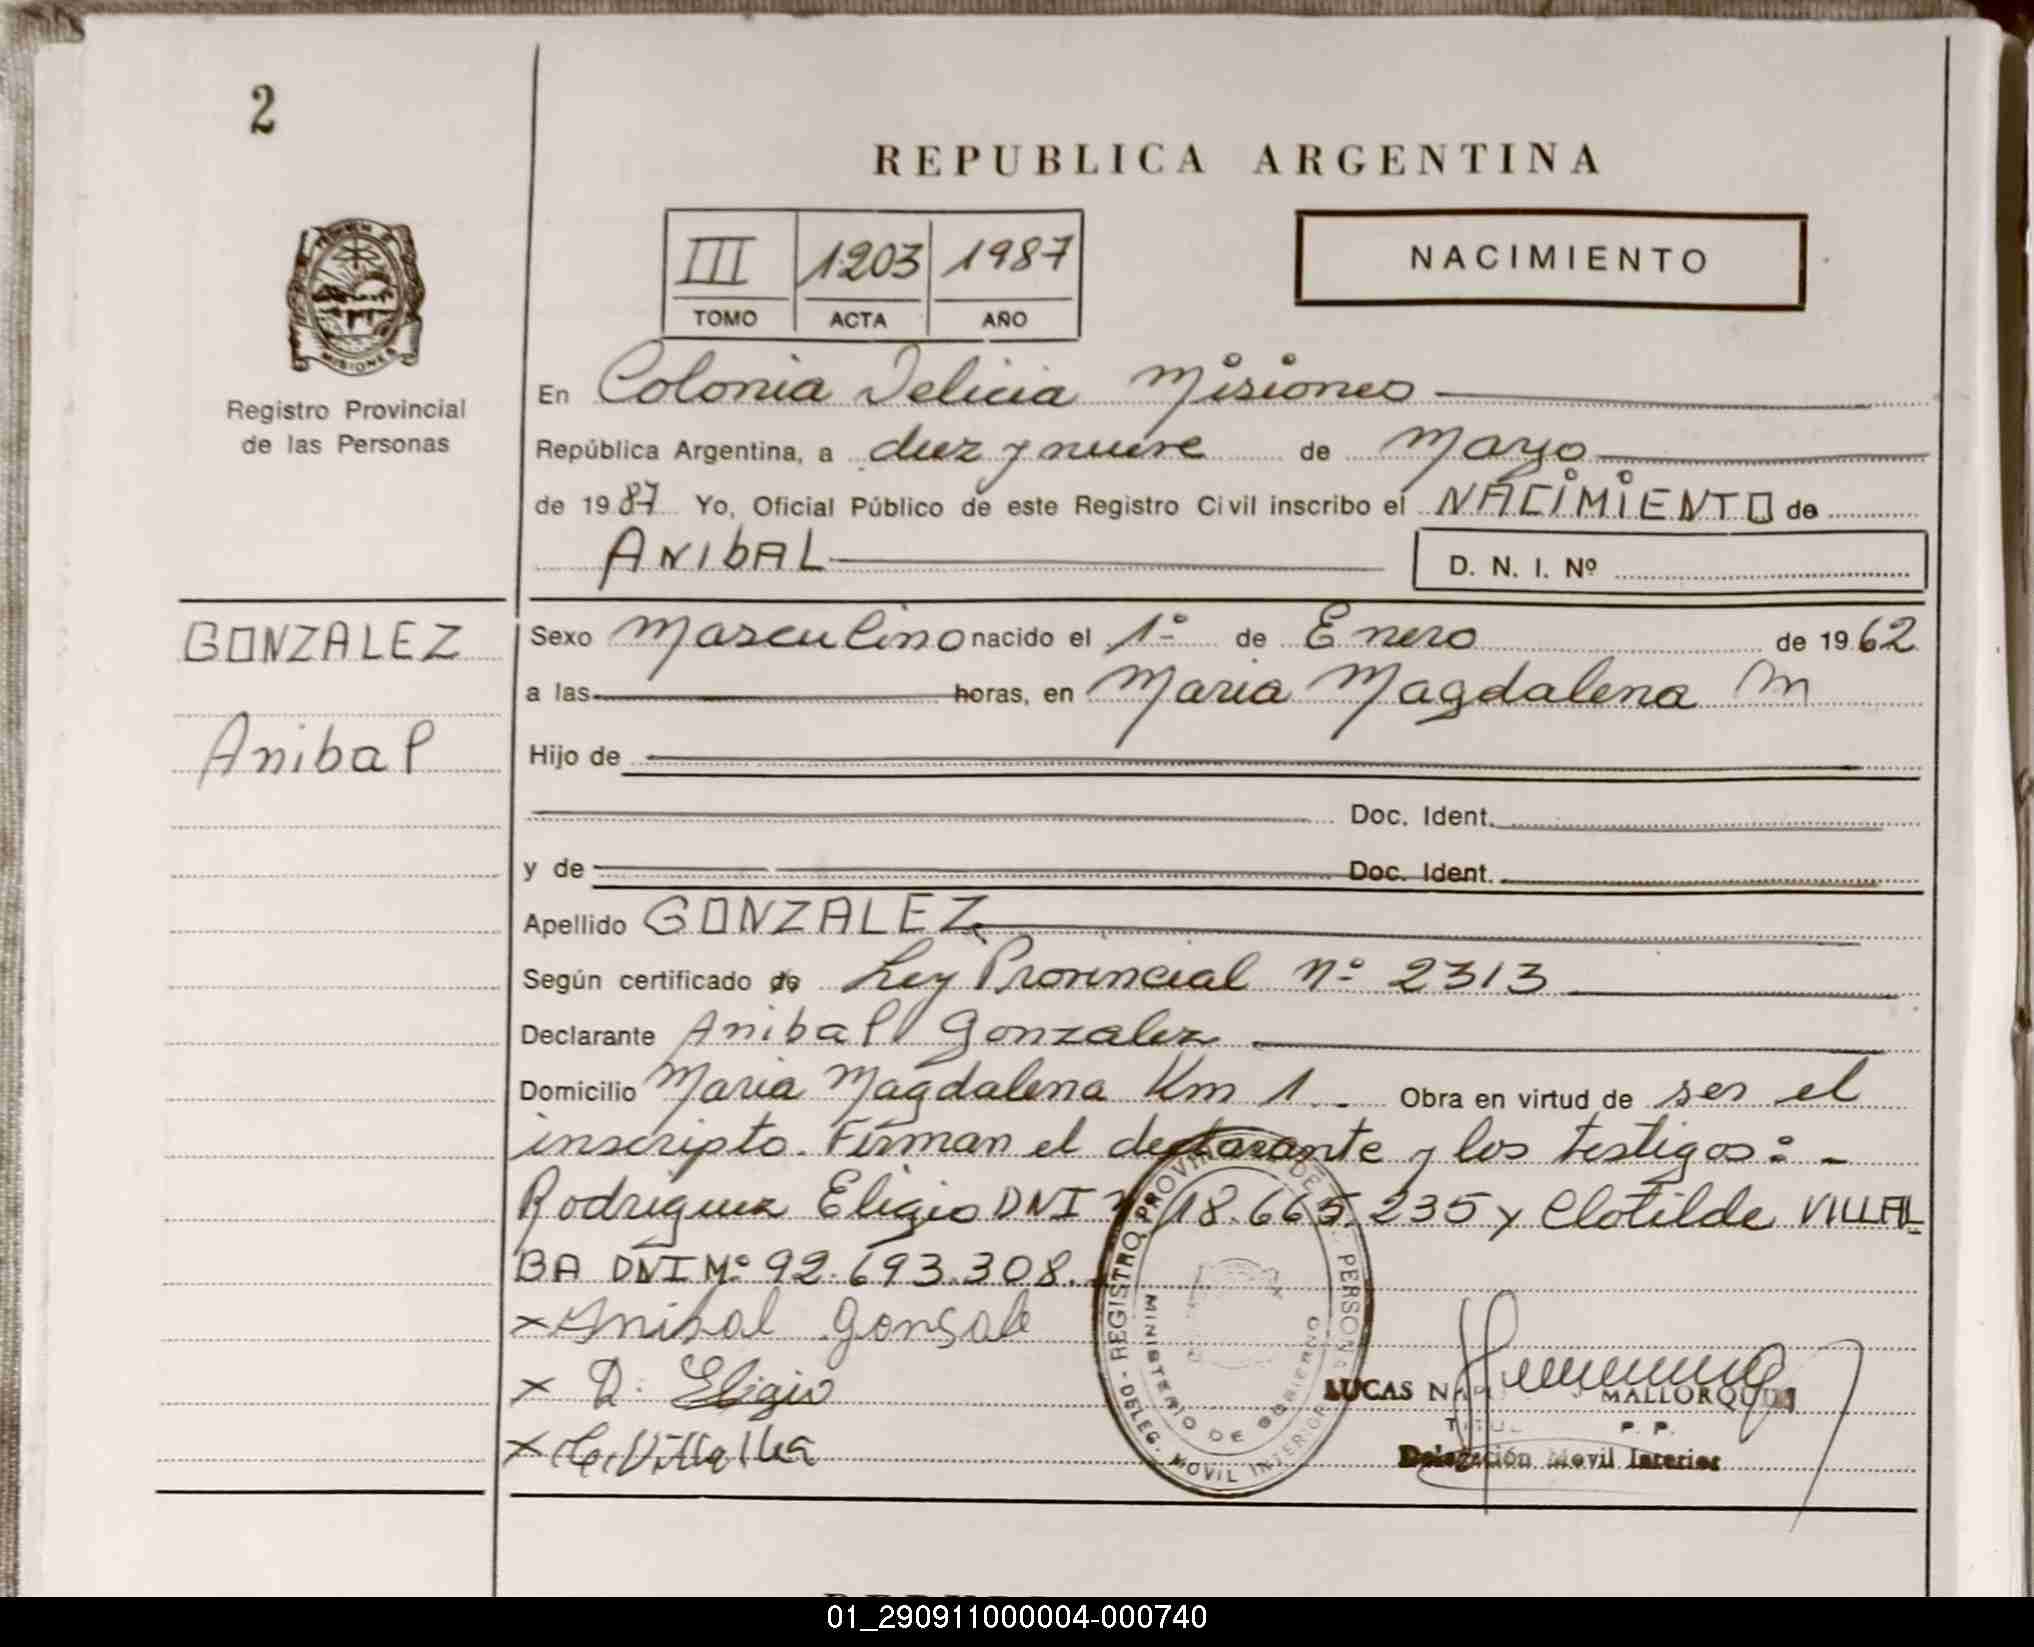 2
REPUBLICA ARGENTINA
III 1203 1987
TOMO ACTA AÑO
NACIMIENTO
MISIONES
Registro Provincial
de las Personas
En Colonia Delicia Misiones
República Argentina, a diez y nueve de Mayo
de 1987 Yo, Oficial Público de este Registro Civil inscribo el NACIMIENTO de
ANIbAL D. N. I. Nº
GONZALEZ
Anibal
Sexo Masculino nacido el 1º de Enero de 1962
a las horas, en Maria Magdalena M
Hijo de
Doc. Ident.
y de Doc. Ident.
Apellido GONZALEZ
Según certificado de Ley Provincial nº 2313
Declarante Anibal Gonzalez
Domicilio Maria Magdalena Km 1. Obra en virtud de ser el
inscripto. Firman el declarante y los testigos: -
Rodriguez Eligio DNI Nº 18.665.235 y Clotilde VILLAL
BA DNI Nº 92.693.308.
x Anibal Gonsale
x R. Eligio
x C. Villalba
REGISTRO PROVINCIAL DE PERSON
MINISTERIO DE GOBIERNO
DELEG. MOVIL INTERIOR
LUCAS MALLORQU
P. P.
Delegación Movil Interior
01_290911000004-000740